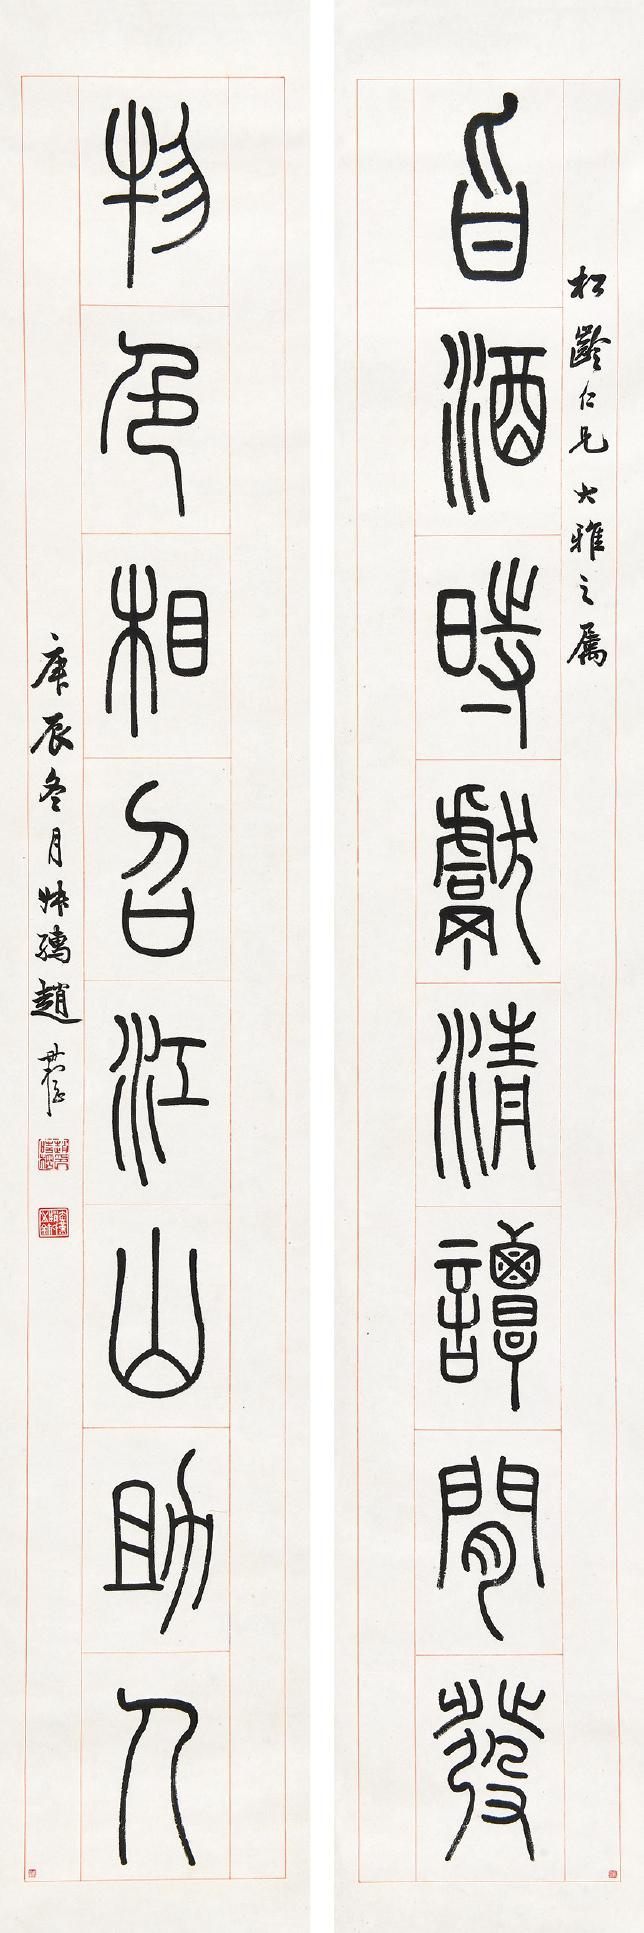 松齡仁兄大雅之屬
旨酒時獻清譚間發
物色相召江山助人
庚辰冬月叔孺趙時棡